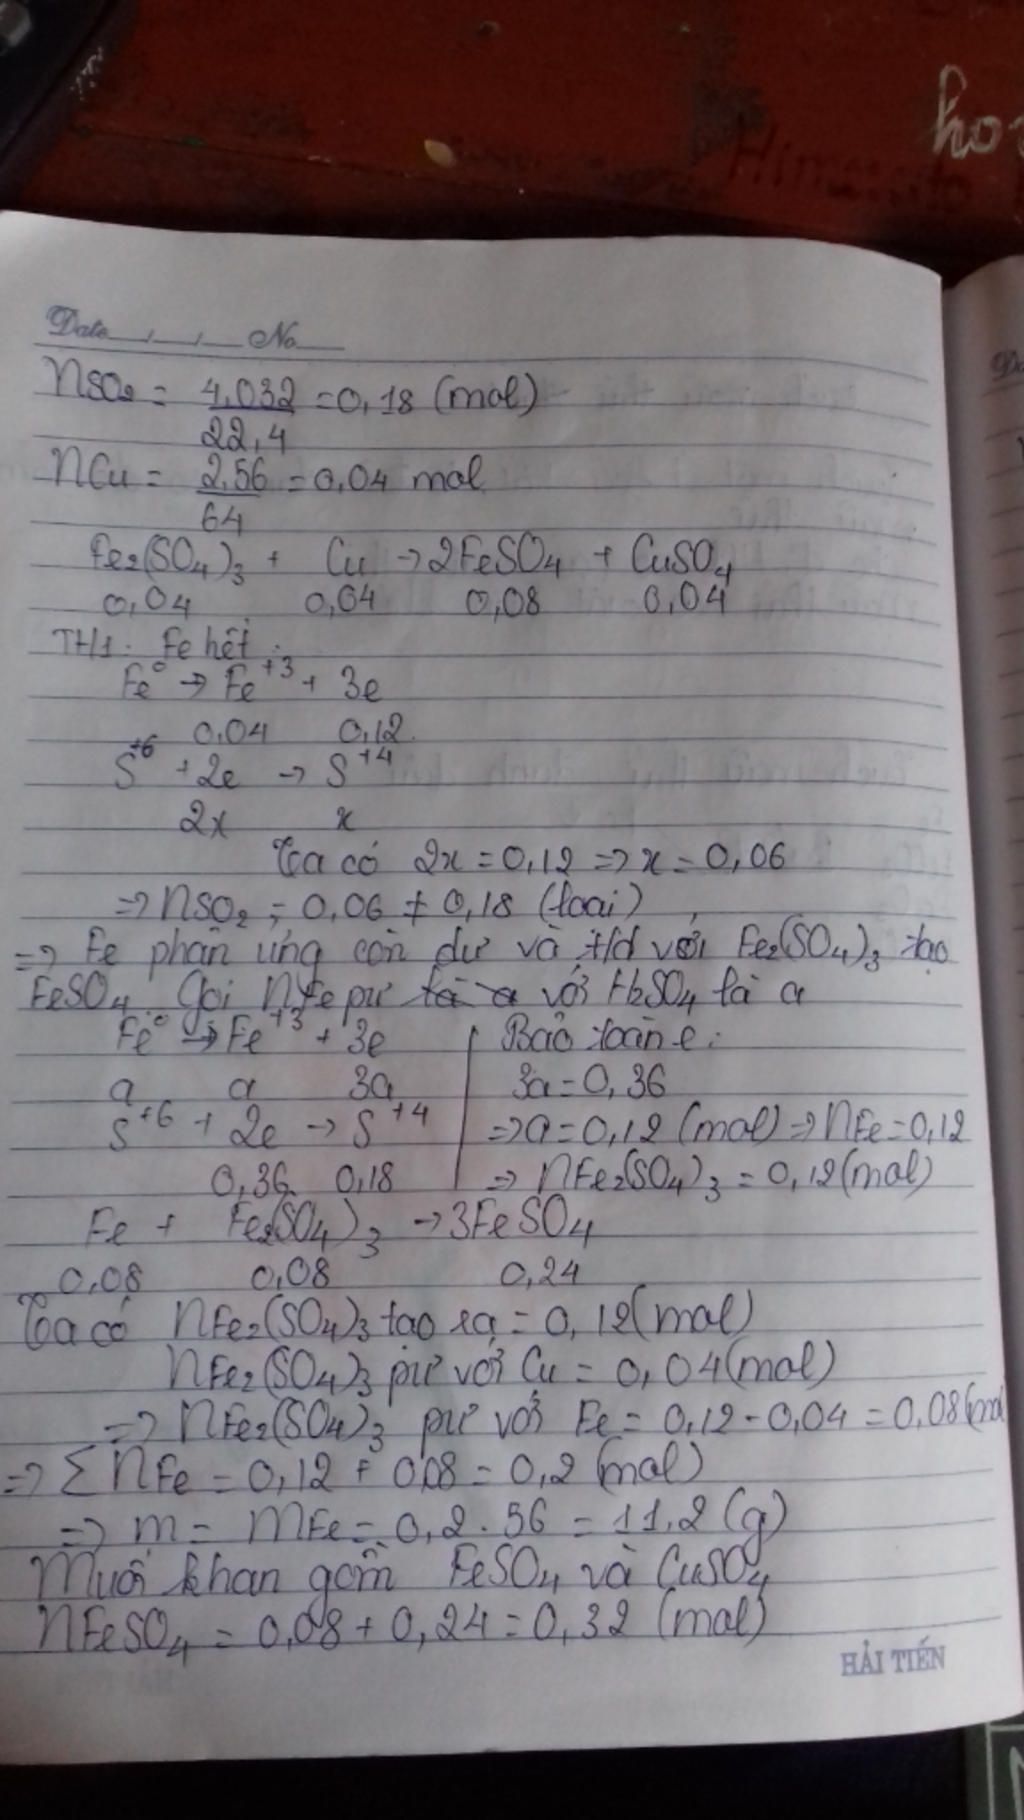 ho
Date / / No
nSO₂ = 4,032/22,4 = 0,18 (mol)
nCu = 2,56/64 = 0,04 mol
Fe₂(SO₄)₃ + Cu → 2FeSO₄ + CuSO₄
0,04 0,04 0,08 0,04
TH1: Fe hết:
Fe⁰ → Fe⁺³ + 3e
0,04 0,12
S⁺⁶ + 2e → S⁺⁴
2x x
Ta có 2x = 0,12 => x = 0,06
=> nSO₂ = 0,06 ≠ 0,18 (loại)
=> Fe phản ứng còn dư và t/d với Fe₂(SO₄)₃ tạo
FeSO₄. Gọi nFe pư là a với H₂SO₄ là a
Fe⁰ → Fe⁺³ + 3e Bảo toàn e:
a a 3a 3a = 0,36
S⁺⁶ + 2e → S⁺⁴ => a = 0,12 (mol) => nFe = 0,12
0,36 0,18 => nFe₂(SO₄)₃ = 0,12 (mol)
Fe + Fe₂(SO₄)₃ → 3FeSO₄
0,08 0,08 0,24
Ta có nFe₂(SO₄)₃ tạo ra = 0,12 (mol)
nFe₂(SO₄)₃ pư với Cu = 0,04 (mol)
=> nFe₂(SO₄)₃ pư với Fe = 0,12 - 0,04 = 0,08 (mol
=> ΣnFe = 0,12 + 0,08 = 0,2 (mol)
=> m = mFe = 0,2 . 56 = 11,2 (g)
Muối khan gồm FeSO₄ và CuSO₄
nFeSO₄ = 0,08 + 0,24 = 0,32 (mol)
HẢI TIẾN